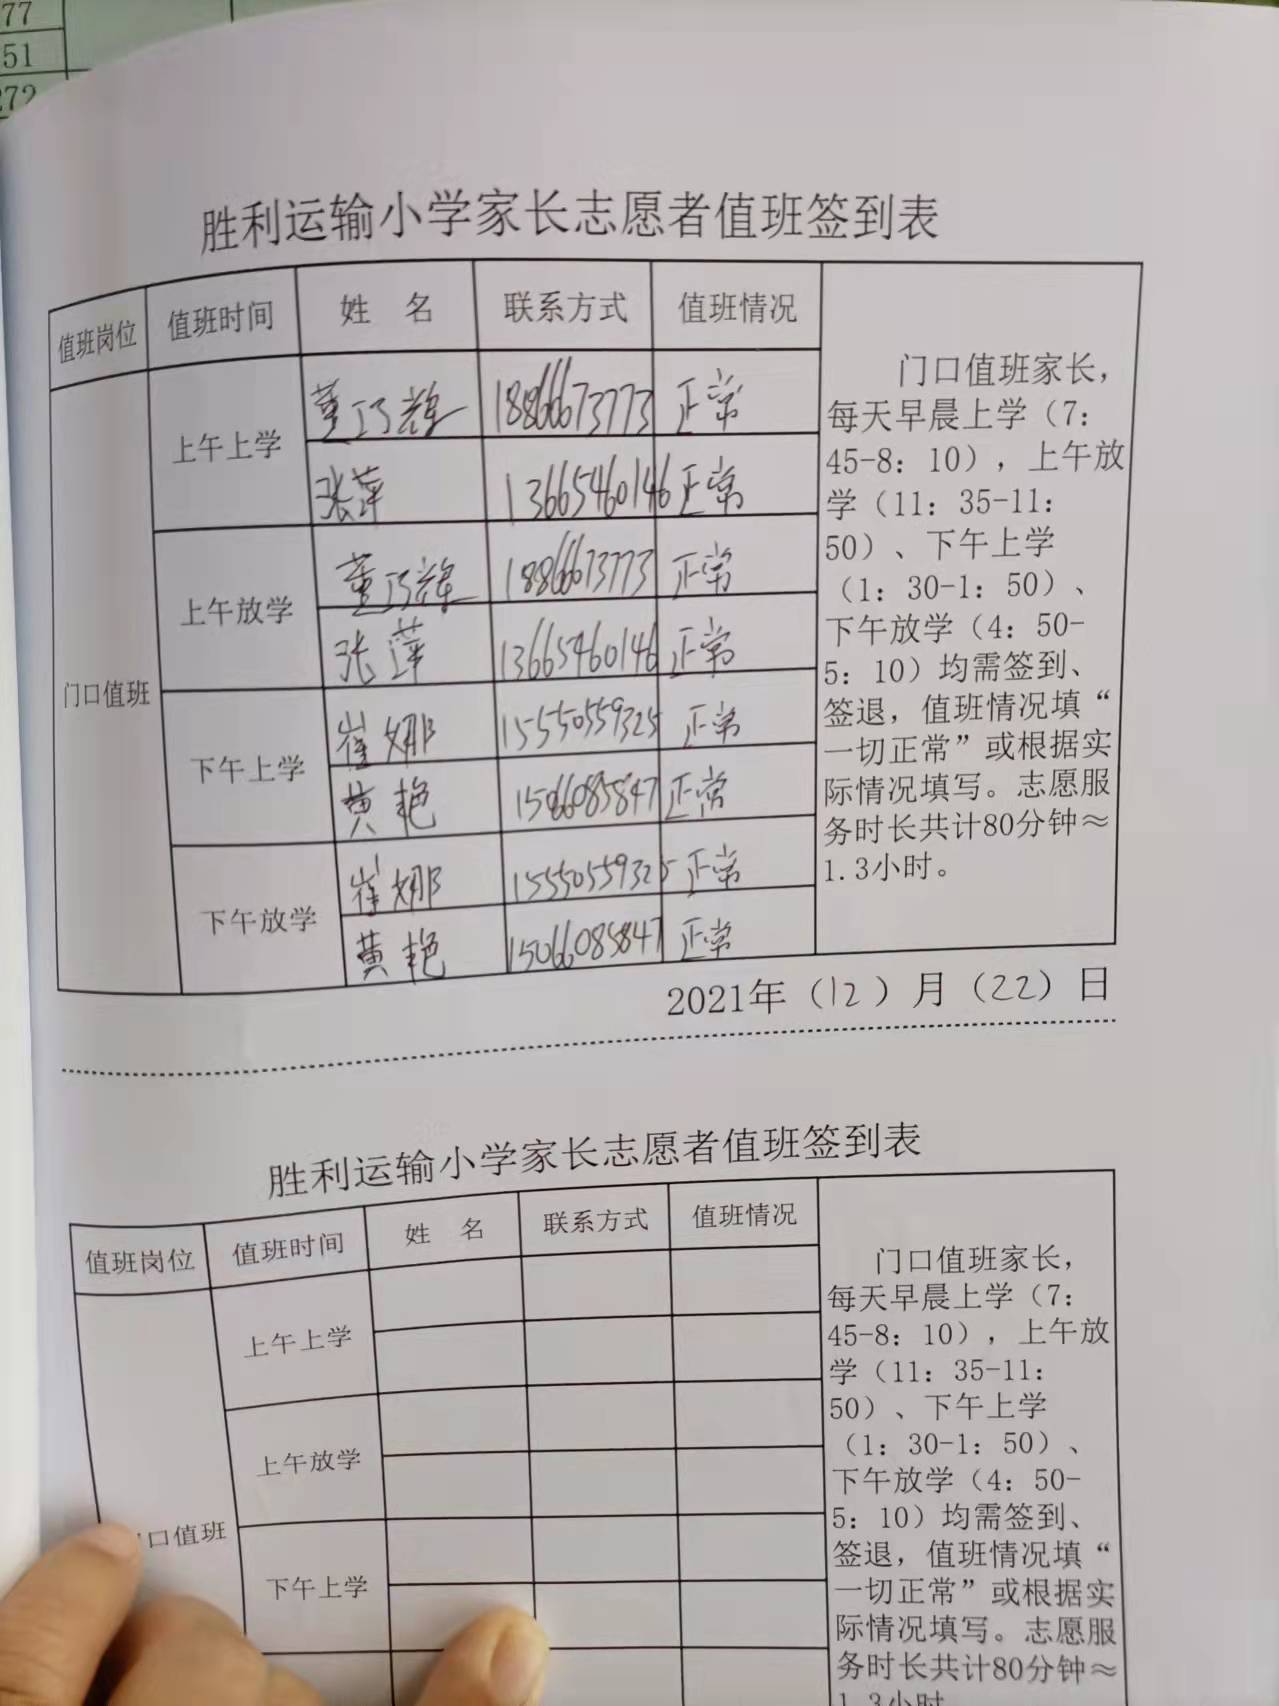 77
51
272
胜利运输小学家长志愿者值班签到表
值班岗位 值班时间 姓 名 联系方式 值班情况
门口值班
上午上学
董巧辉 18866673773 正常
张萍 13665460146 正常
上午放学
董巧辉 18866673773 正常
张萍 13665460146 正常
下午上学
崔娜 15550559325 正常
黄艳 15066085847 正常
下午放学
崔娜 15550559325 正常
黄艳 15066085847 正常
门口值班家长，
每天早晨上学（7：
45-8：10），上午放
学（11：35-11：
50）、下午上学
（1：30-1：50）、
下午放学（4：50-
5：10）均需签到、
签退，值班情况填“
一切正常”或根据实
际情况填写。志愿服
务时长共计80分钟≈
1.3小时。
2021年（12）月（22）日
胜利运输小学家长志愿者值班签到表
值班岗位 值班时间 姓 名 联系方式 值班情况
口值班
上午上学
上午放学
下午上学
门口值班家长，
每天早晨上学（7：
45-8：10），上午放
学（11：35-11：
50）、下午上学
（1：30-1：50）、
下午放学（4：50-
5：10）均需签到、
签退，值班情况填“
一切正常”或根据实
际情况填写。志愿服
务时长共计80分钟≈
1.3小时